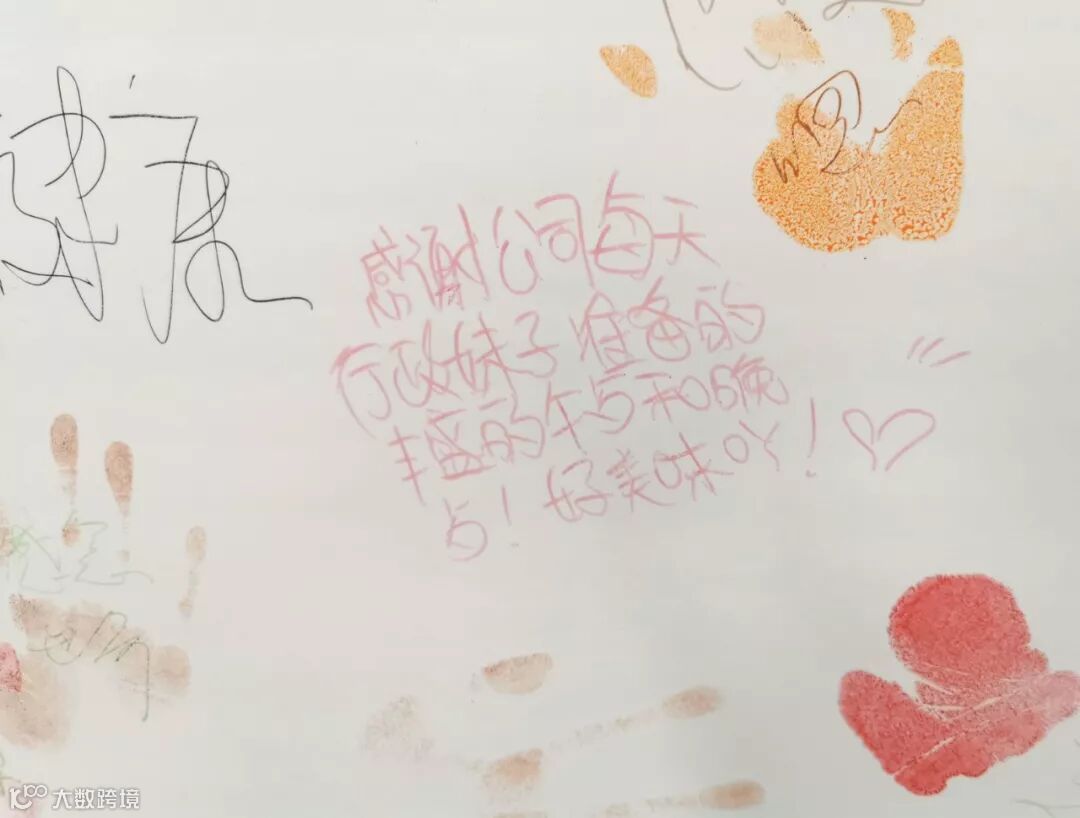 健康
感谢公司每天
行政妹子准备的
丰盛的午点和晚
点！好美味吖！
大数跨境